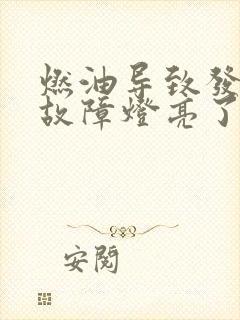 燃油导致發
故障燈亮了
安閱